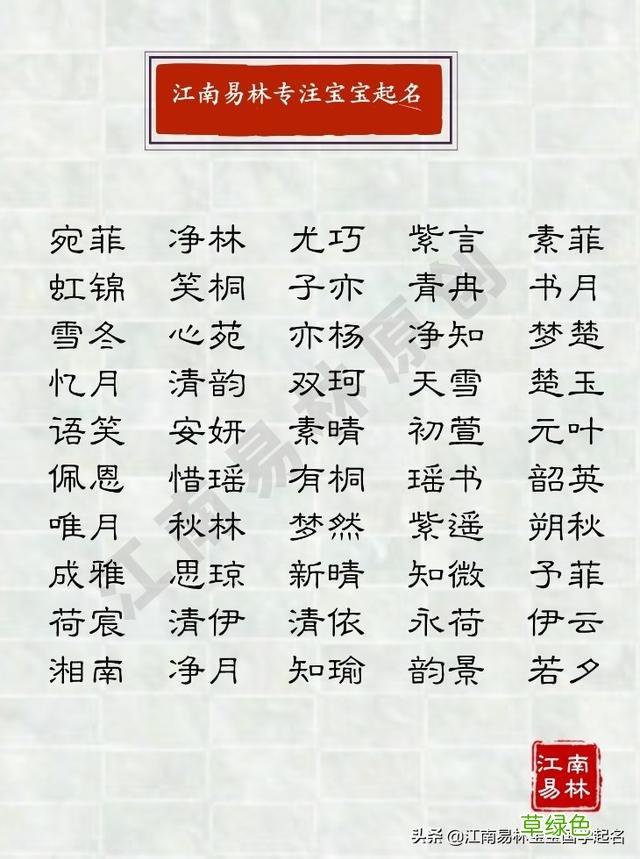 江南易林专注宝宝起名
宛菲 净林 尤巧 紫言 素菲
虹锦 笑桐 子亦 青冉 书月
雪冬 心苑 亦杨 净知 梦楚
忆月 清韵 双珂 天雪 楚玉
语笑 安妍 素晴 初萱 元叶
佩恩 惜瑶 有桐 瑶书 韶英
唯月 秋林 梦然 紫遥 朔秋
成雅 思琼 新晴 知微 予菲
荷宸 清伊 清依 永荷 伊云
湘南 净月 知瑜 韵景 若夕
江南易林原创
江南
易林
草绿色
头条 @江南易林宝宝国学起名